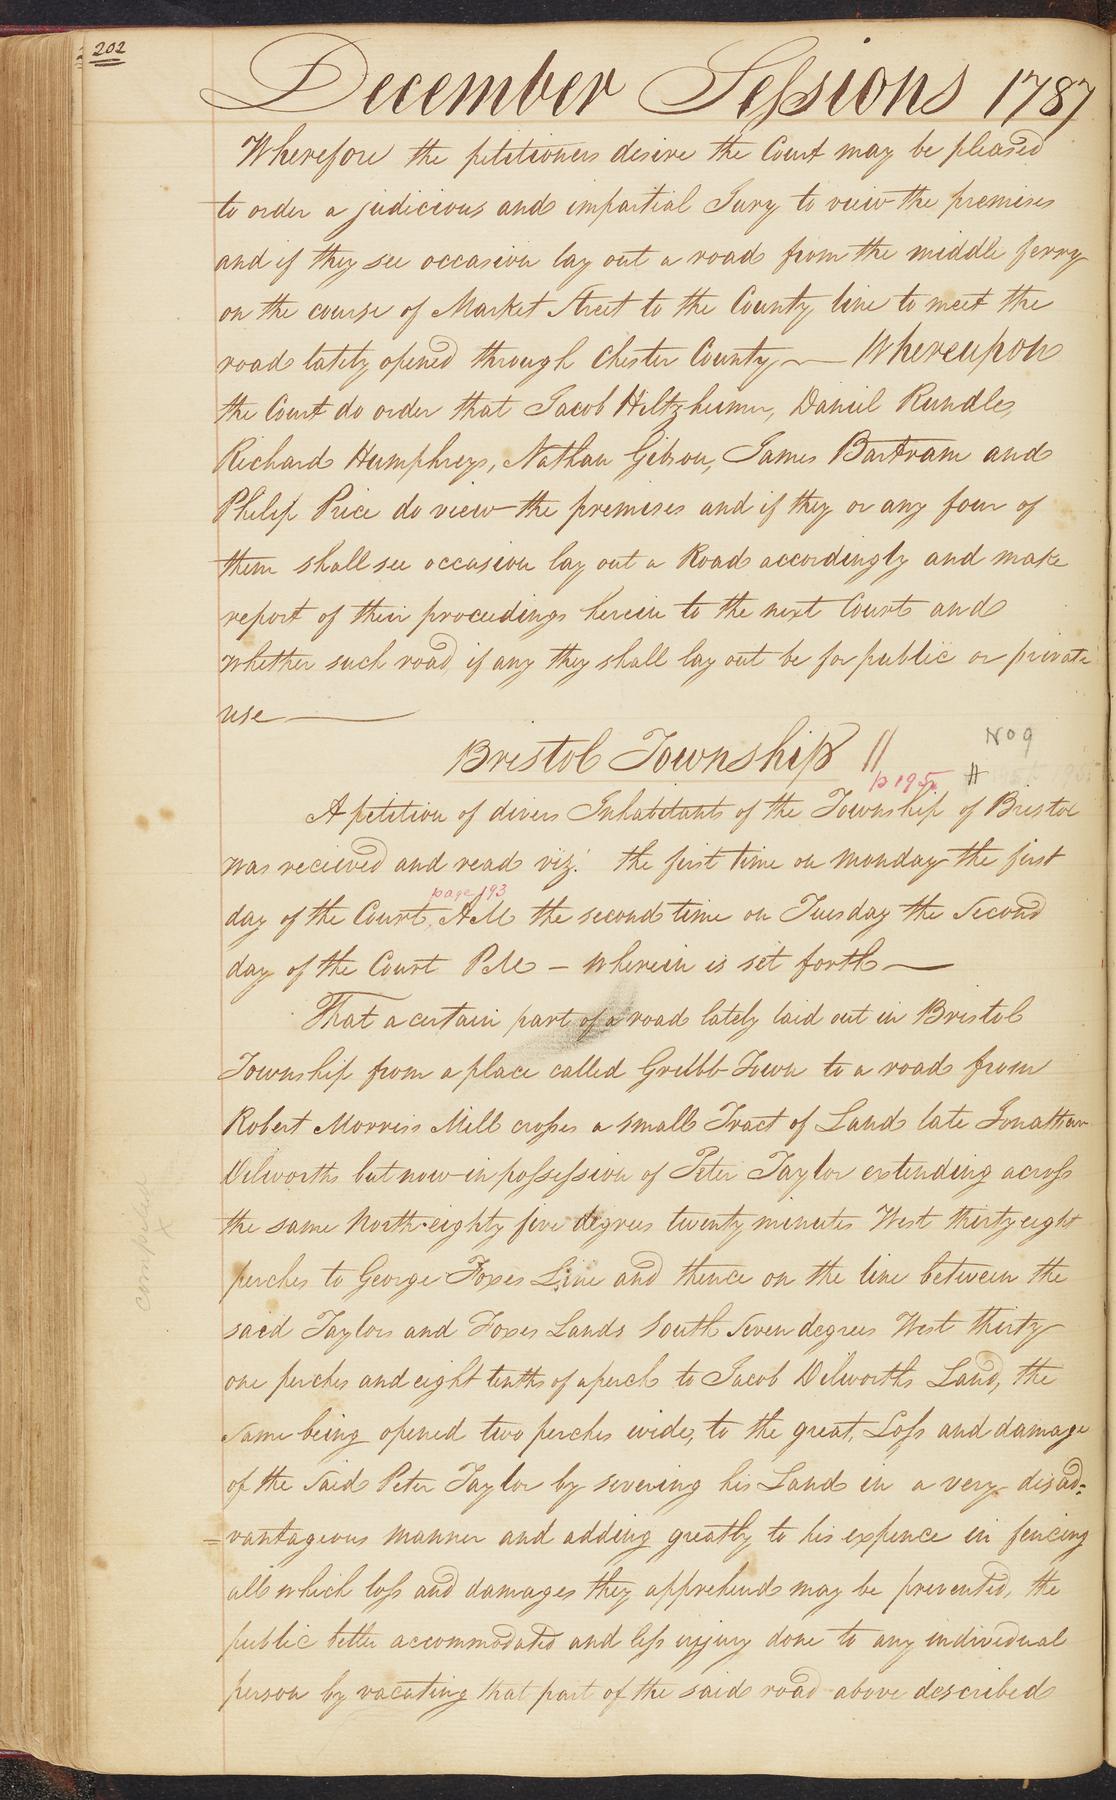 202
December Sessions 1787
Wherefore the petitioners desire the Court may be pleased
to order a judicious and impartial Jury to view the premises
and if they see occasion lay out a road from the middle ferry
on the course of Market Street to the County line to meet the
road lately opened through Chester County — Whereupon
the Court do order that Jacob Hiltzheimer, Daniel Rundle,
Richard Humphreys, Nathan Gibson, James Bartram and
Philip Price do view the premises and if they or any four of
them shall see occasion lay out a Road accordingly and make
report of their proceedings herein to the next Court and
whether such road if any they shall lay out be for public or private
use —
Bristol Township //
No 9
p 195 #
A petition of divers Inhabitants of the Township of Bristol
was recieved and read viz. the first time on Monday the first
page 193
day of the Court, A.M the second time on Tuesday the Second
day of the Court P.M — wherein is set forth —
That a certain part of a road lately laid out in Bristol
Township from a place called Grubb Town to a road from
Robert Morris's Mill crosses a small Tract of Land late Jonathan
Dilworths but now in possession of Peter Taylor extending across
the same North eighty five degrees twenty minutes West thirty eight
perches to George Foxes Line and thence on the line between the
said Taylors and Foxes Lands South Seven degrees West thirty
one perches and eight tenths of a perch to Jacob Dilworths Land, the
same being opened two perches wide, to the great, Loss and damage
of the Said Peter Taylor by severing his Land in a very disad-
=vantageous manner and adding greatly to his expence in fencing
all which loss and damages they apprehend may be prevented, the
public better accommodated and less injury done to any individual
person by vacating that part of the said road above described
compiled
x